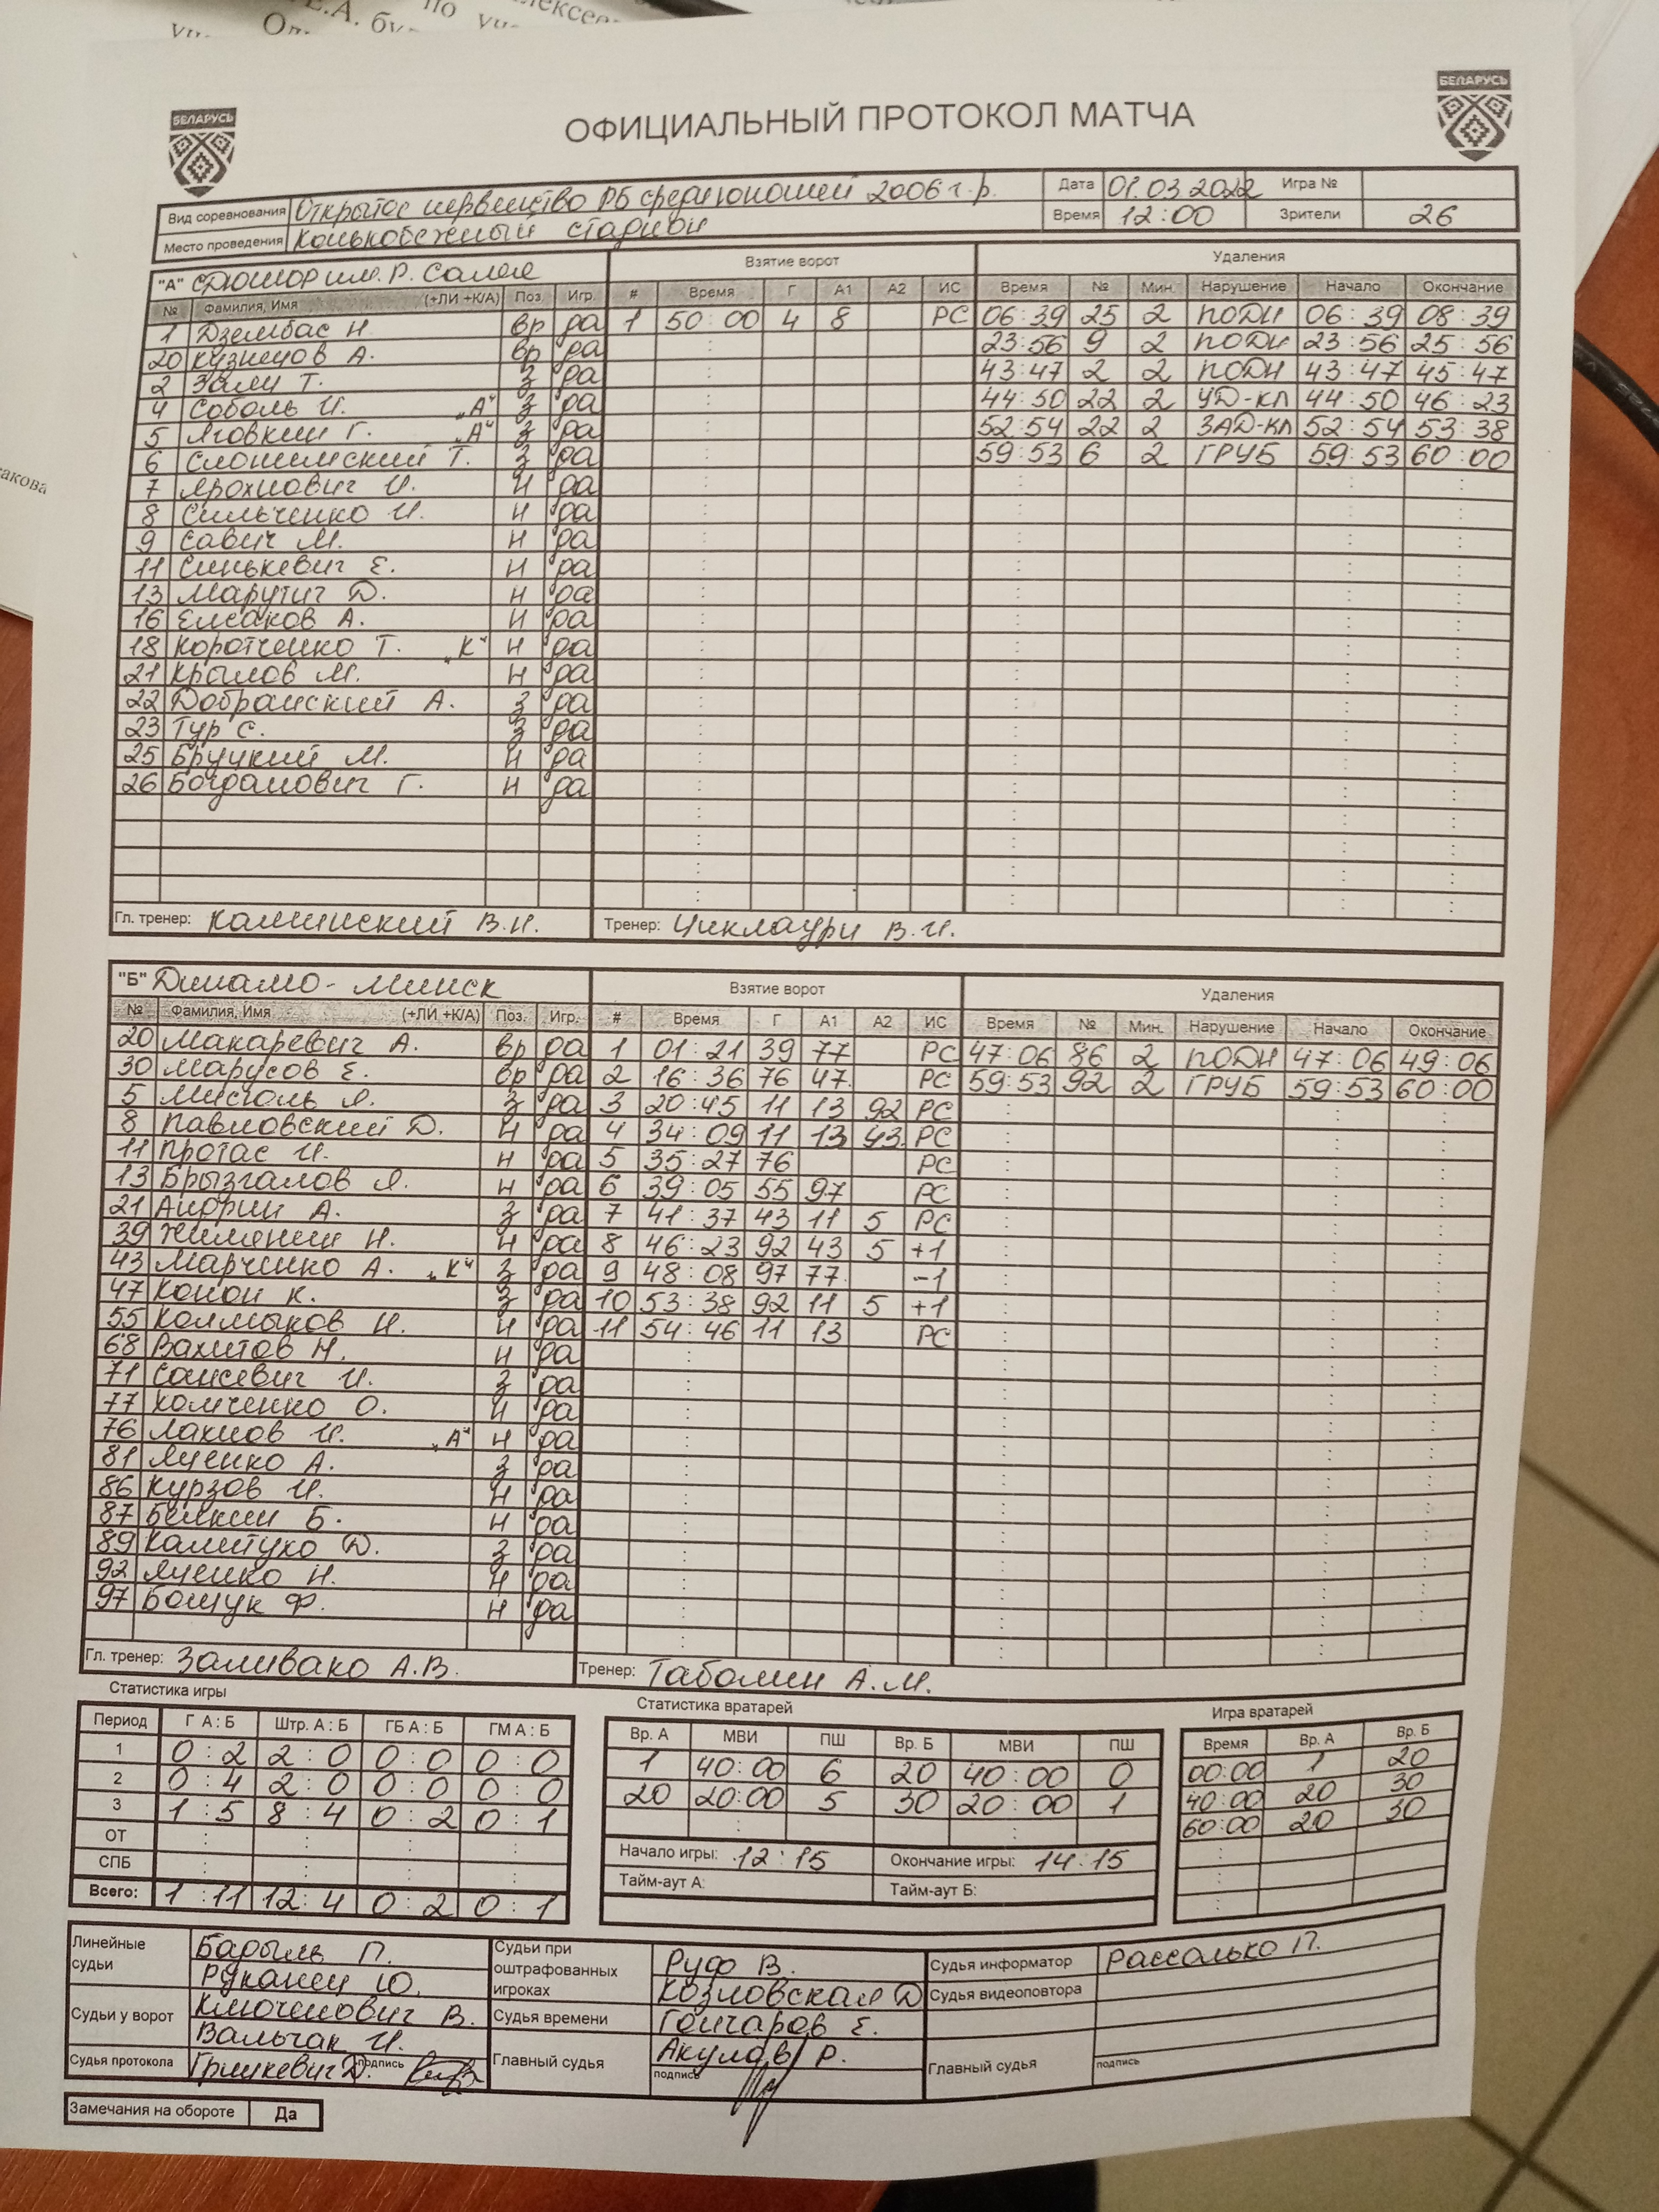 БЕЛАРУСЬ
БЕЛАРУСЬ
ОФИЦИАЛЬНЫЙ ПРОТОКОЛ МАТЧА
Вид соревнования Открытое первенство РБ среди юношей 2006 г.р. Дата 01.03.2022 Игра №
Место проведения Конькобежный стадион Время 12:00 Зрители 26
"А" СДЮШОР им. Р. Салея Взятие ворот Удаления
№ Фамилия, Имя (+ЛИ +К/А) Поз. Игр. # Время Г А1 А2 ИС Время № Мин. Нарушение Начало Окончание
1 Дзембас Н. вр да 1 50:00 4 8 РС 06:39 25 2 ПОДН 06:39 08:39
20 Кузнецов А. вр да 23:56 9 2 ПОДН 23:56 25:56
2 Т. з да 43:47 2 2 ПОДН 43:47 45:47
4 Соболь И. „А" з да 44:50 22 2 УД-КЛ 44:50 46:23
5 Яговкин Г. „А" з да 52:54 22 2 ЗАД-КЛ 52:54 53:38
6 Слонимский Т. з да 59:53 6 2 ГРУБ 59:53 60:00
7 Ярохнович И. н да
8 Сильченко И. н да
9 Савич М. н да
11 Синькевич Е. н да
13 Марутич Д. н да
16 Елсаков А. н да
18 Коротченко Т. „К" н да
21 Крылов М. н да
22 Добранский А. з да
23 Тур С. з да
25 Бруцкий М. н да
26 Богданович Г. н да
Гл. тренер: Каминский В.Н. Тренер: Циклаури В.И.
"Б" Динамо-Минск Взятие ворот Удаления
№ Фамилия, Имя (+ЛИ +К/А) Поз. Игр. # Время Г А1 А2 ИС Время № Мин. Нарушение Начало Окончание
20 Макаревич А. вр да 1 01:21 39 77 РС 47:06 86 2 ПОДН 47:06 49:06
30 Марусов Е. вр да 2 16:36 76 47 РС 59:53 92 2 ГРУБ 59:53 60:00
5 Мисюль Я. з да 3 20:45 11 13 92 РС
8 Павловский Д. н да 4 34:09 11 13 43 РС
11 Протас И. н да 5 35:27 76 РС
13 Брызгалов Я. н да 6 39:05 55 97 РС
21 А. з да 7 41:37 43 11 5 РС
39 Н. н да 8 46:23 92 43 5 +1
43 Марченко А. „К" з да 9 48:08 97 77 -1
47 Конон К. з да 10 53:38 92 11 5 +1
55 Колмыков Н. н да 11 54:46 11 13 РС
68 Вахитов Н. н да
71 И. з да
77 Хомченко О. н да
76 Лахнов И. „А" н да
81 Яценко А. з да
86 Курзов И. н да
87 Белкин Б. н да
89 Калитухо Д. з да
92 Яценко Н. н да
97 Бощук Ф. н да
Гл. тренер: Заливако А.В. Тренер: Таболин А.М.
Статистика игры Статистика вратарей Игра вратарей
Период Г А : Б Штр. А : Б ГБ А : Б ГМ А : Б Вр. А МВИ ПШ Вр. Б МВИ ПШ Время Вр. А Вр. Б
1 0:2 2:0 0:0 0:0 1 40:00 6 20 40:00 0 00:00 1 20
2 0:4 2:0 0:0 0:0 20 20:00 5 30 20:00 1 40:00 20 30
3 1:5 8:4 0:2 0:1 60:00 20 30
ОТ Начало игры: 12:15 Окончание игры: 14:15
СПБ Тайм-аут А: Тайм-аут Б:
Всего: 1:11 12:4 0:2 0:1
Линейные судьи Барыль П. Судьи при оштрафованных игроках Руф В. Судья информатор Рассолько П.
Руканец Ю. Козловская Д Судья видеоповтора
Судьи у ворот Ключенович В. Судья времени Гончаров Е.
Вальчак И. Главный судья Акулов Р. Главный судья
Судья протокола Гришкевич Д. подпись подпись подпись
Замечания на обороте Да